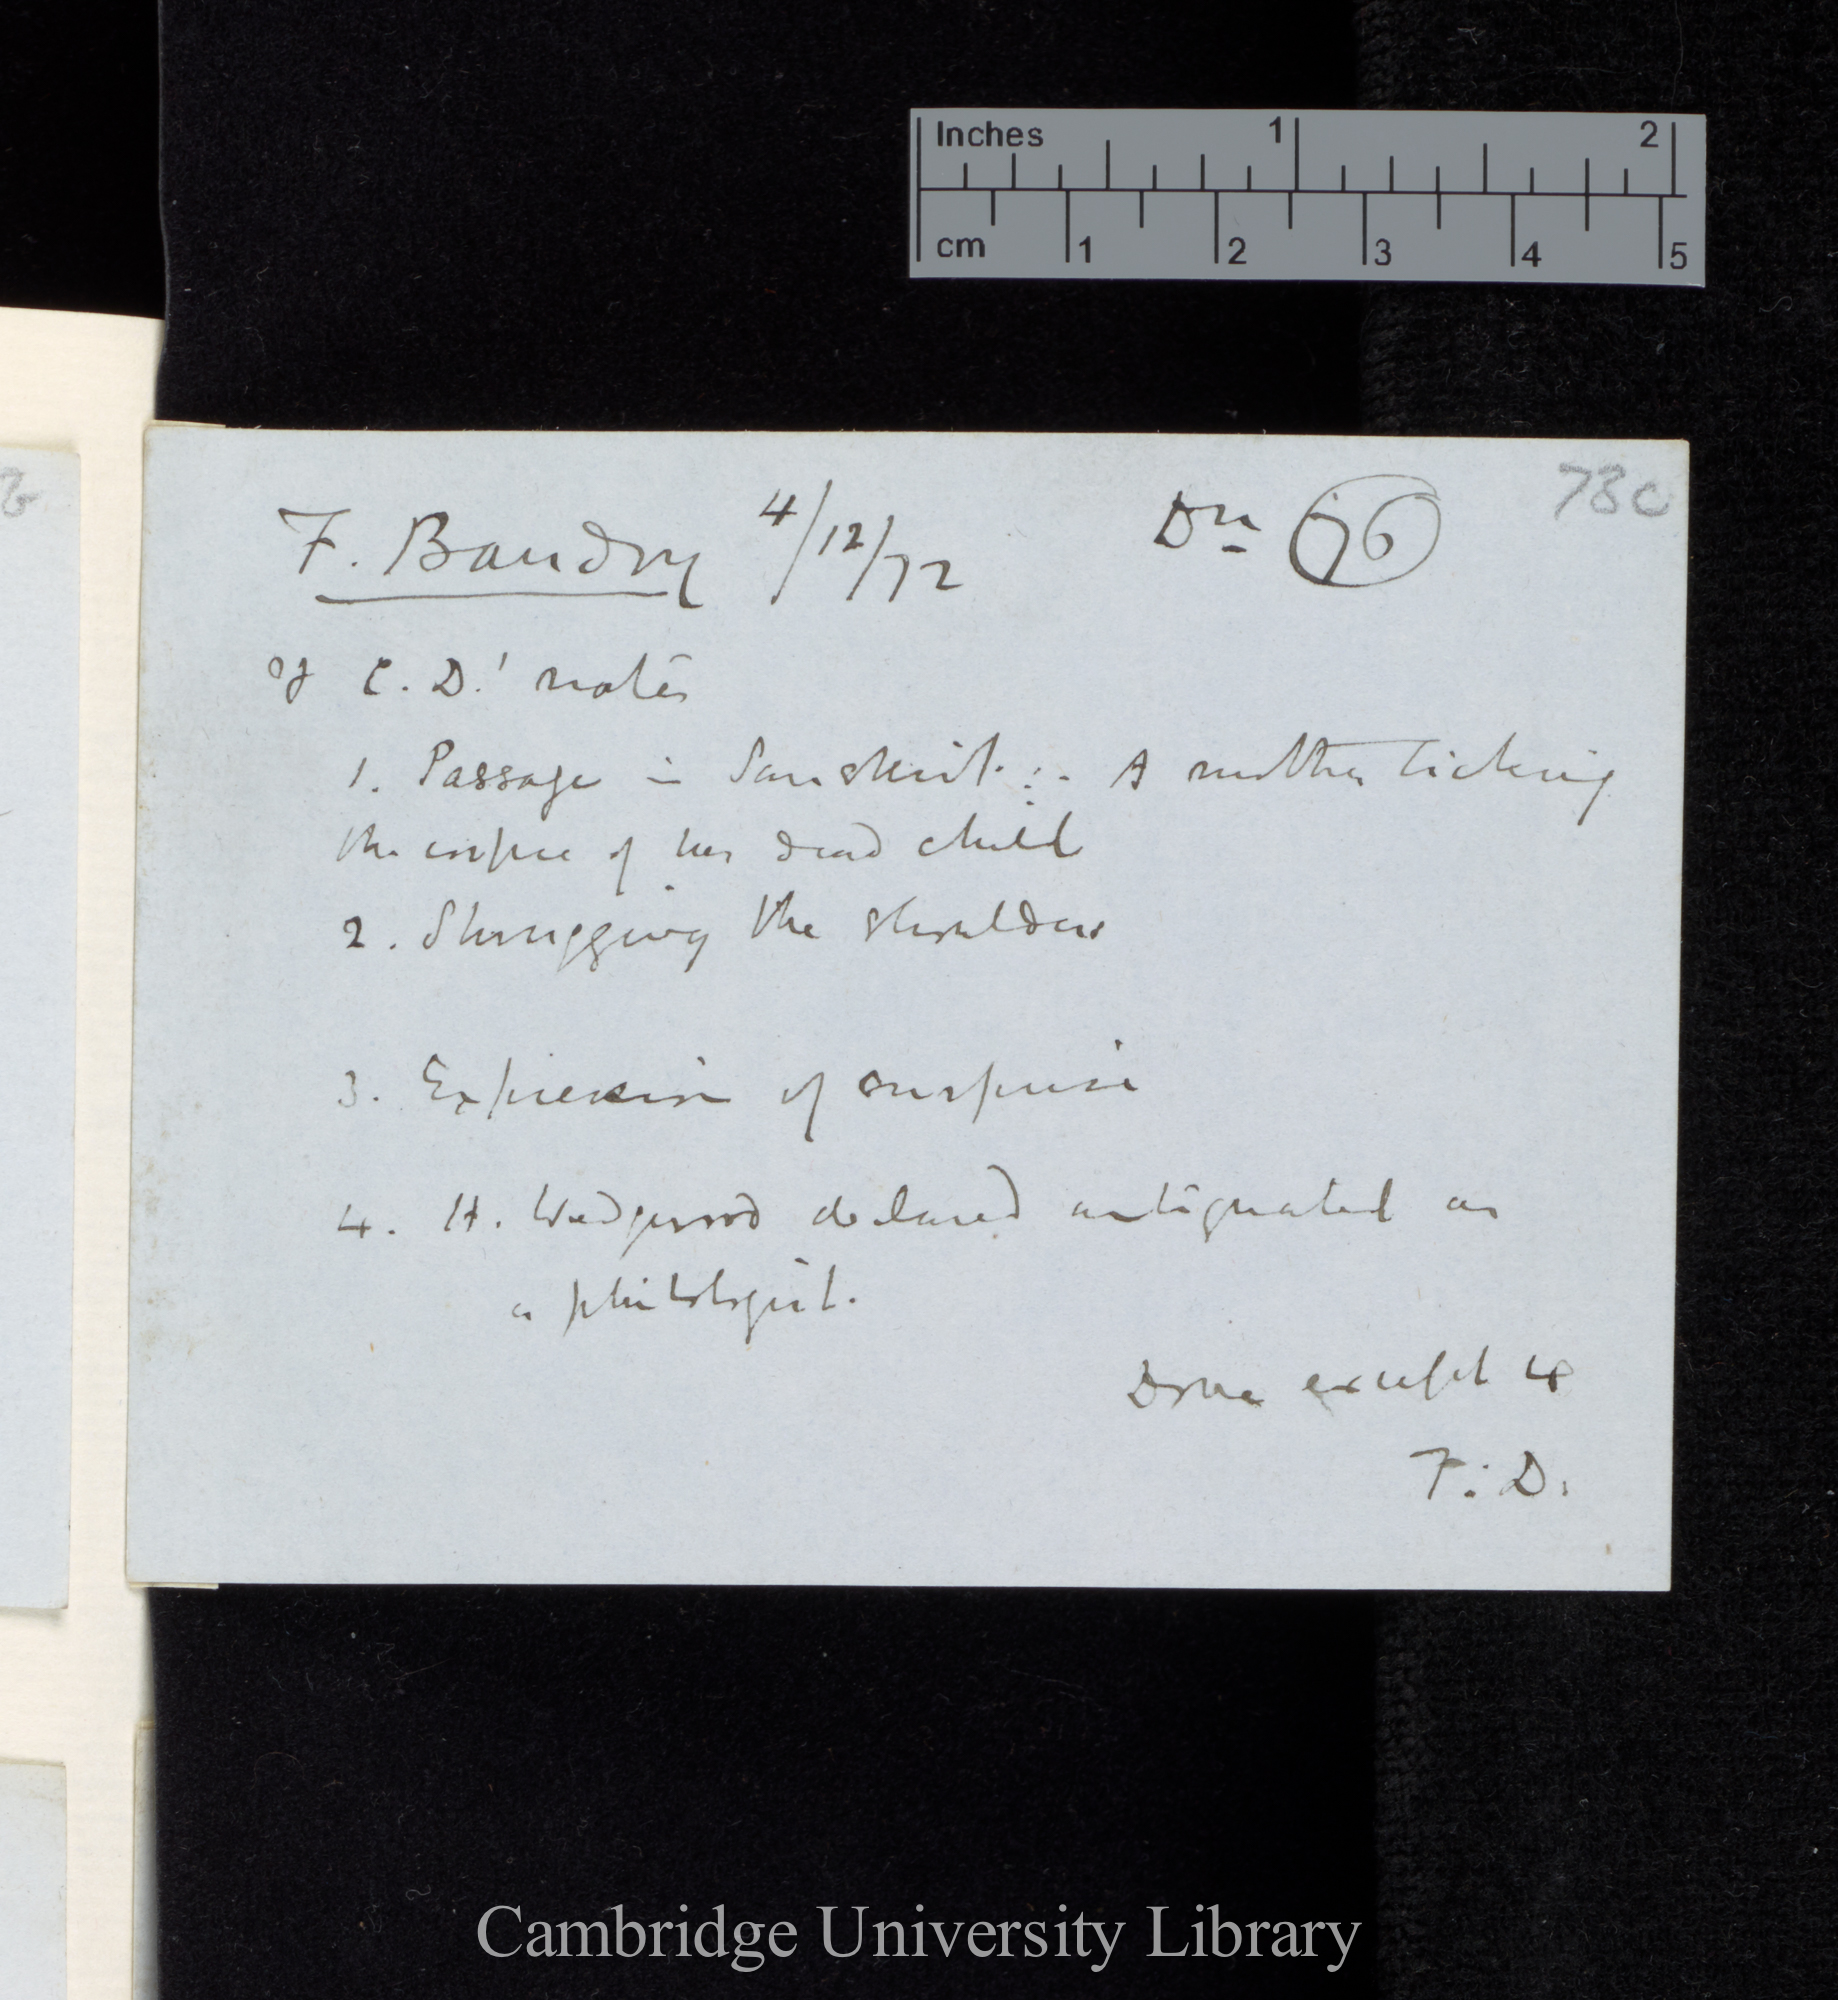 Inches 1 2
cm 1 2 3 4 5
F. Baudry 4/12/72 Dn 76 73c
of C. D.' notes
1. Passage in Sanskrit :- A mother licking
the corpse of her dead child
2. Shrugging the shoulders
3. Expression of surprise
4. H. Wedgwood declared antiquated as
a philologist.
Done except 4
F. D.
Cambridge University Library